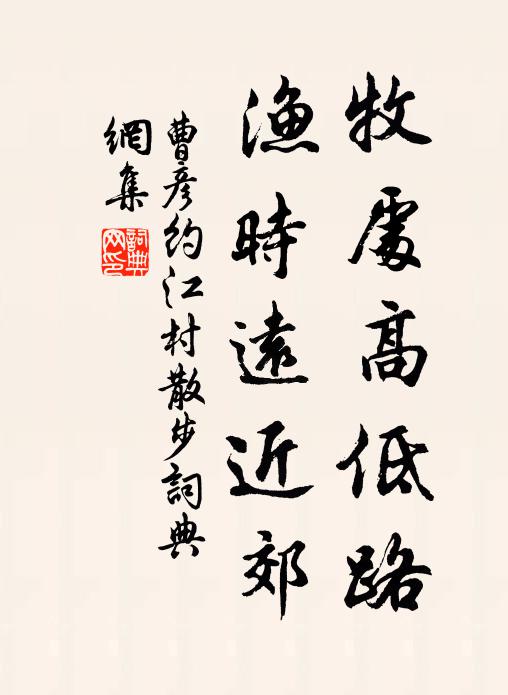 牧處高低路
漁時遠近郊
曹彥約江村散步詞典
網集
詞典
网印